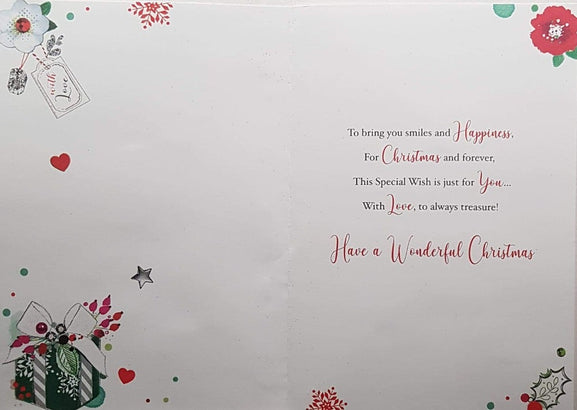 with
Love
To bring you smiles and Happiness,
For Christmas and forever,
This Special Wish is just for You...
With Love, to always treasure!
Have a Wonderful Christmas